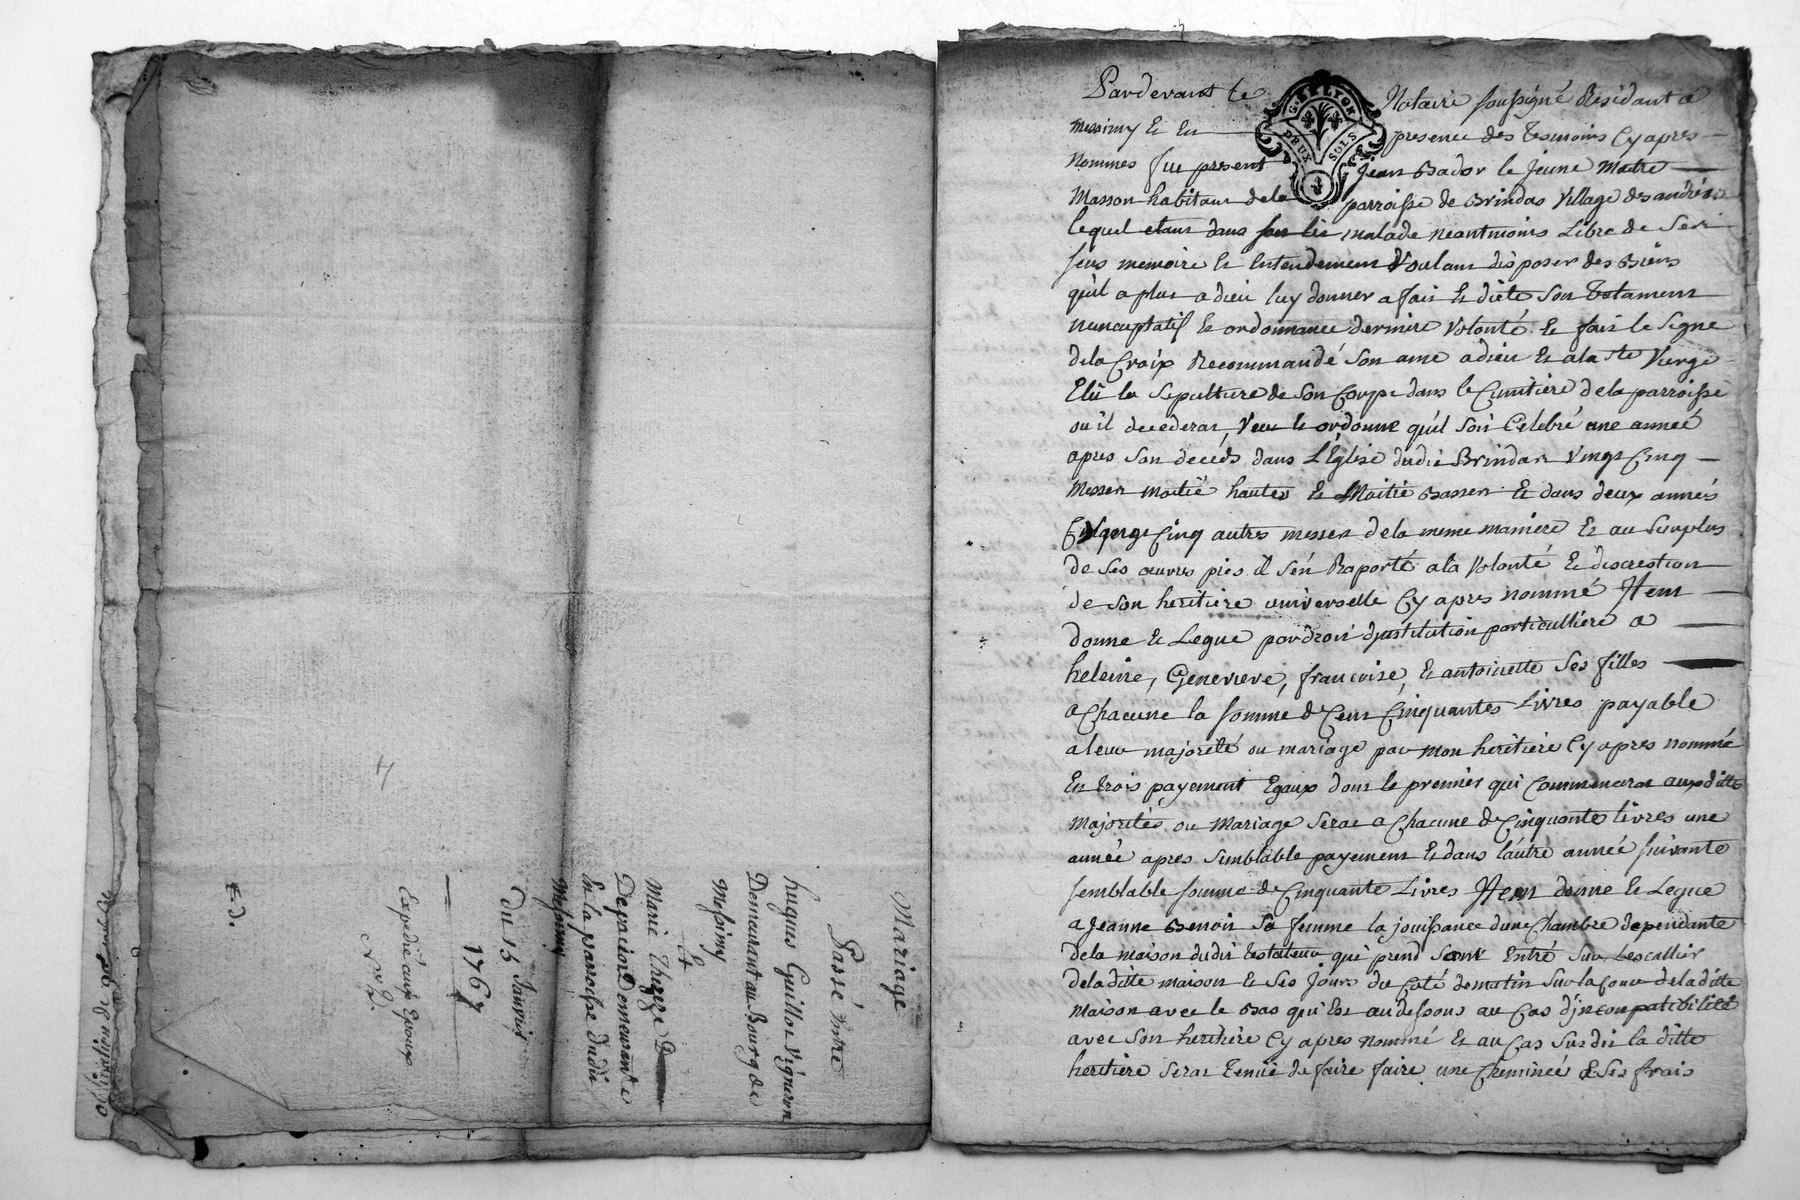 Mariage
Passé entre
hugues Guillot Vigneron
Demeurant au Bourg de
Messimy
Et
Marie Therese
Demeurante
En la parroisse dudit
Messimy
Du 15 Janvier
1767
Expedié aux Epoux
E d.
4
obligation de
Pardevant le Notaire soussigné Residant a
messimy Et En presence des Tesmoins Cy apres
nommes fut present Jean Bador le Jeune Maitre
Masson habitant dela parroisse de Brindas Village des andrés
lequel etant dans son lit malade neantmoins Libre de Ses
sens memoire Et Entendement Voulant disposer des Biens
quil a plut a dieu luy donner a fait Et dicté Son Testament
nuncuptatif Et ordonnance dernire Volonté Et fait le Signe
dela Croix Recommandé Son ame a dieu Et ala Ste Vierge
Elû la Sepulture de Son Corps dans le Cimitiere dela parroisse
ou il decederat, Veut Et ordonne qu'il Soit Celebré une année
apres Son décéds dans L'Eglise dudit Brindas Vingt Cinq
Messes moitié hautes Et Moitié Basses Et dans deux années
Vingt Cinq autres messes dela meme maniere Et au Surplus
de Ses œuvres pies il s'én Raporté ala Volonté Et discrestion
de Son heritiere universelle Cy apres nommé Item
donne Et Legue par droit d'institution particulliere a
heleine, Genevieve, francoise, Et antoinette Ses filles
a Chacune la somme de Cent Cinquantes Livres payable
a leur majorité ou mariage par mon heritiere Cy apres nommé
En trois payement Egaux dont le premier qui Commencerat auxdittes
majorités ou Mariage Serat a Chacune de Cinquante livres une
année apres Semblable payement Et dans l'autre année suivante
semblable somme de Cinquante Livres Item donne Et Legue
a Jeanne Benoit Sa femme la jouissance d'une Chambre dependante
dela maison dudit testateur qui prend Son Entré Sur Lescallier
dela ditte maison Et Ses Jours du Coté dematin Sur la Cour dela ditte
Maison avec le Bas qui Est au dessous au Cas d'jncompatibilité
avec Son heritiere Cy apres nommé Et au Cas Susdit la ditte
heritiere Serat Tenüe de faire faire une Cheminée a Ses frais
G. DE LYON
DEUX SOLS